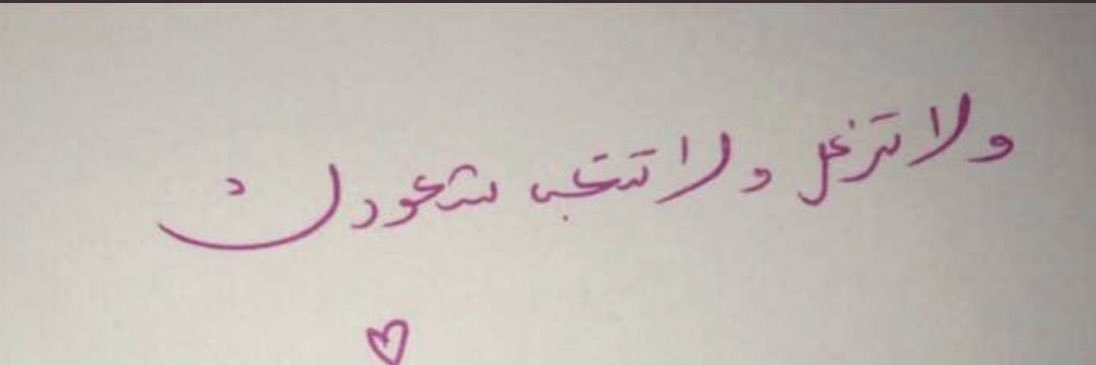 ولا تزعل ولا تتعب شعورك